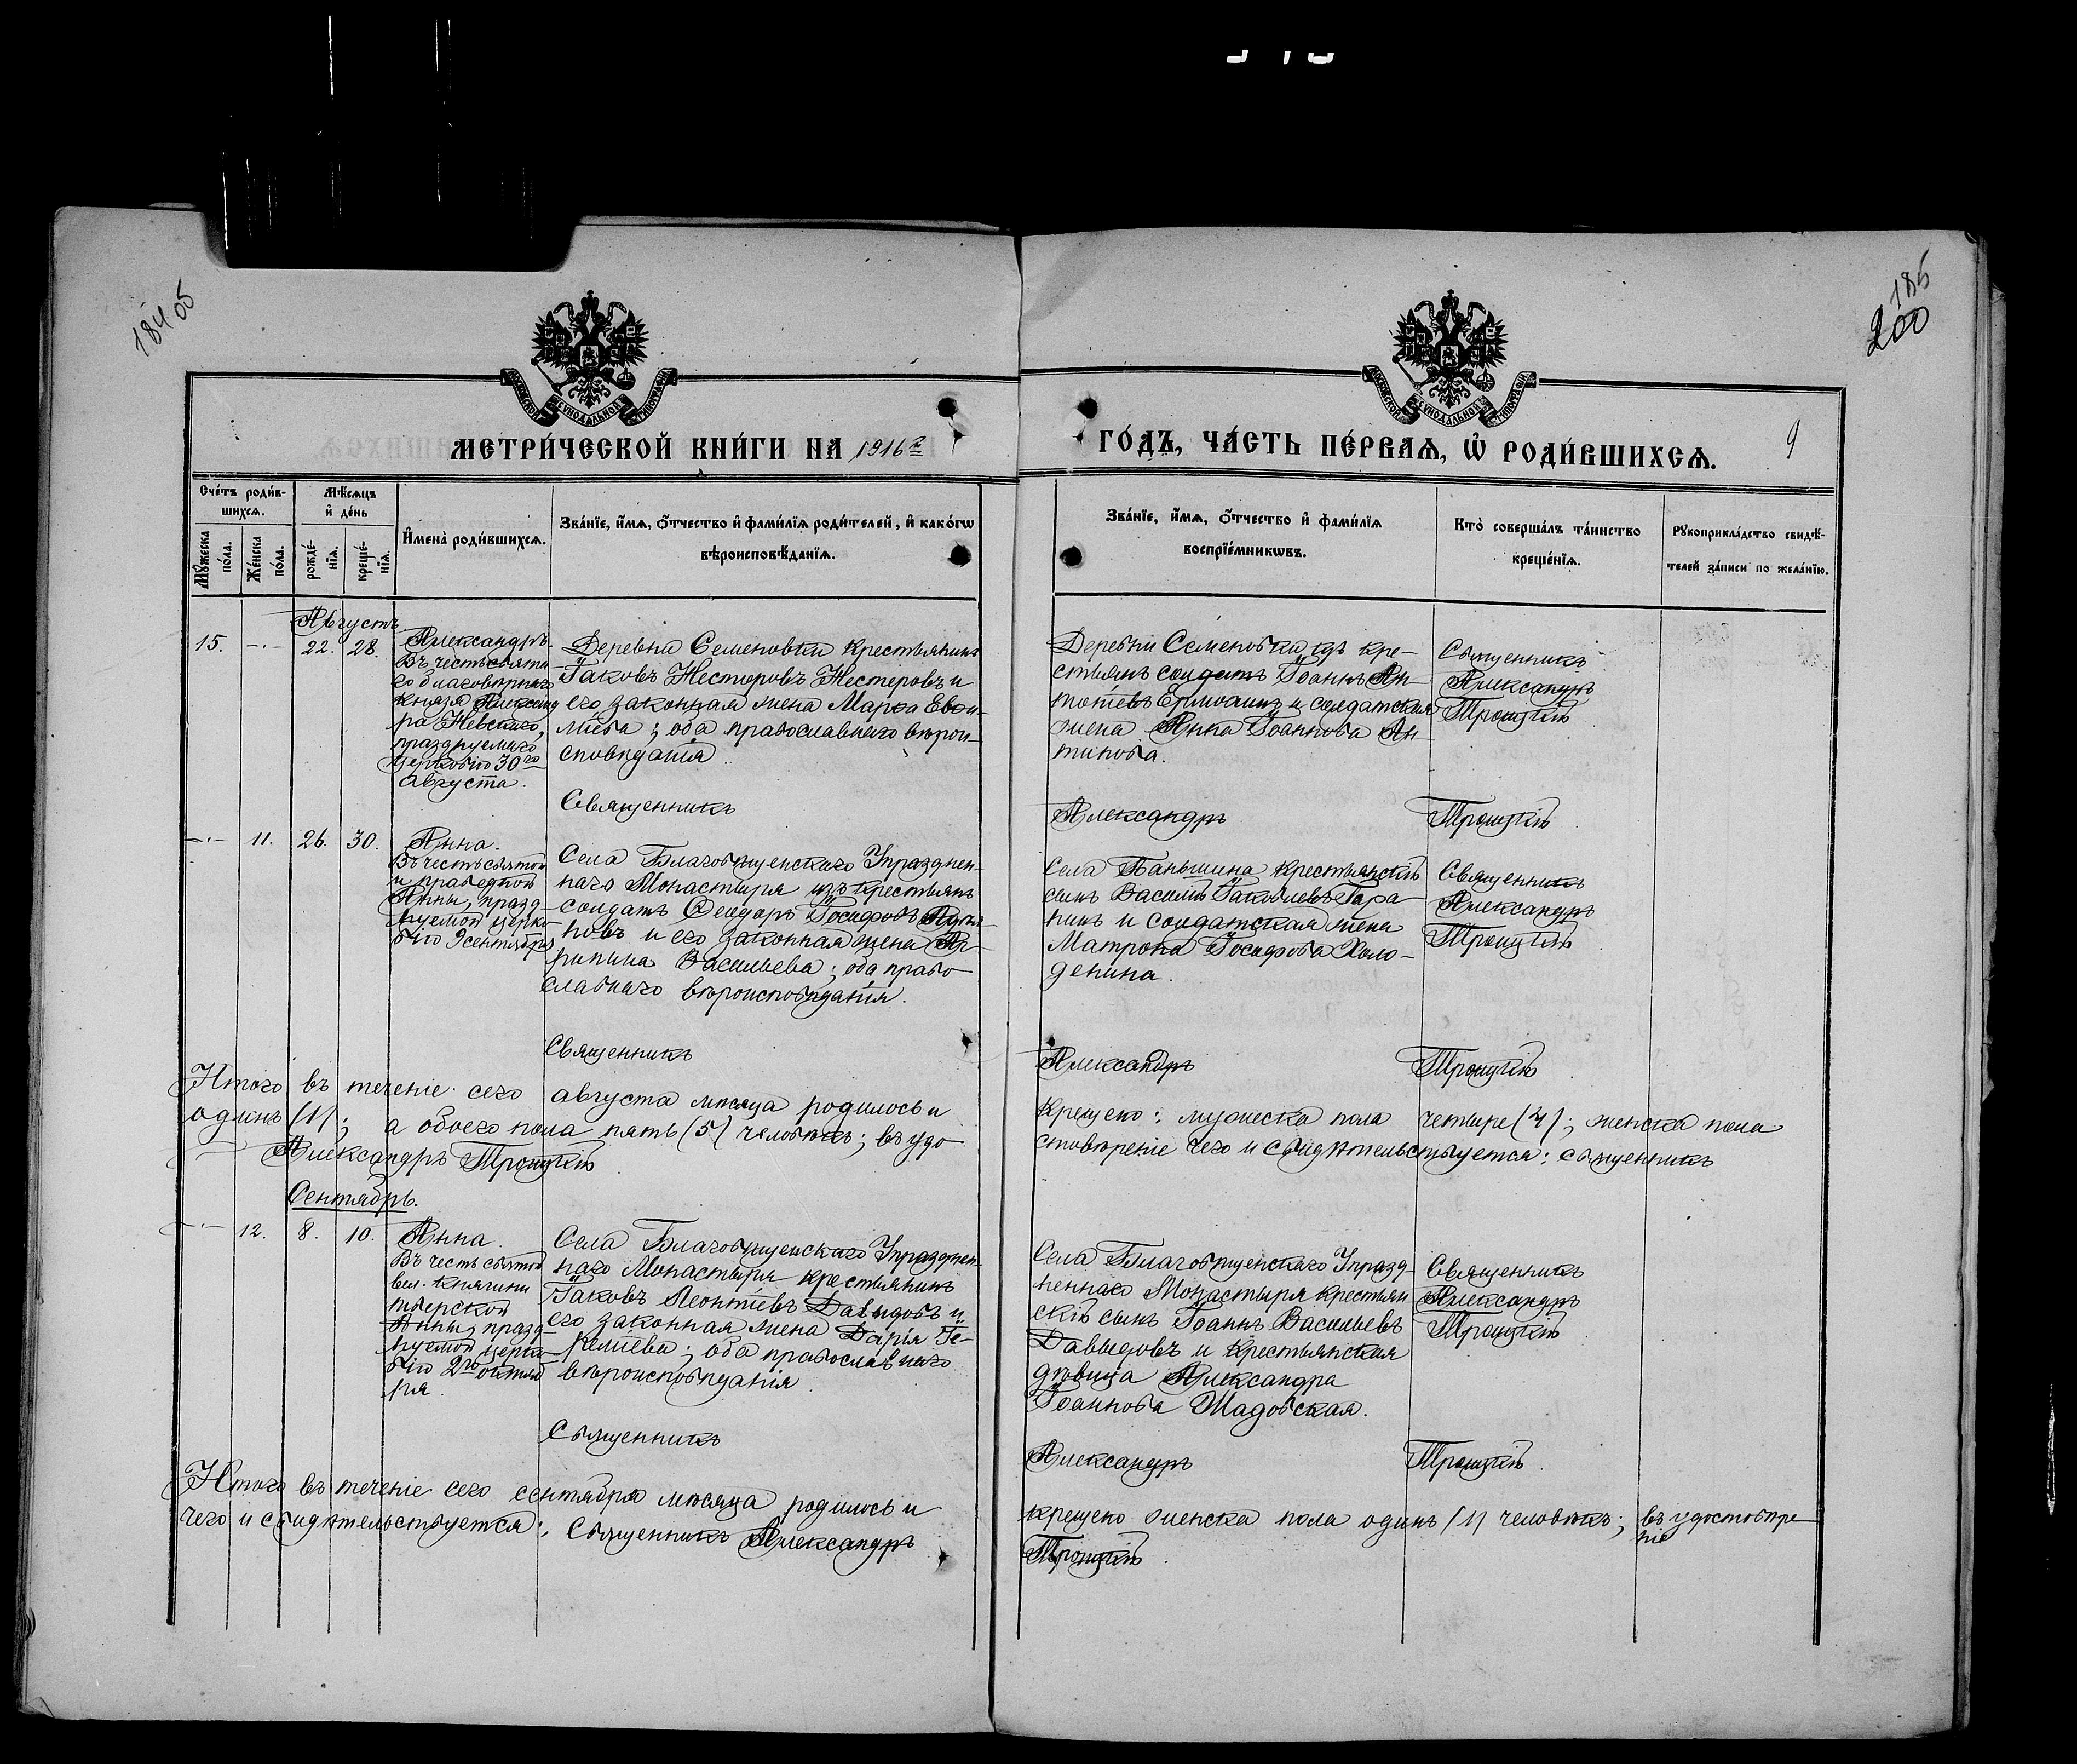 184 об
185
200
МОСКОВСКОЙ СѴНОДАЛЬНОЙ ТИПОГРАФІИ
МОСКОВСКОЙ СѴНОДАЛЬНОЙ ТИПОГРАФІИ
МЕТРИ́ЧЕСКОЙ КНИ́ГИ НА 1916 г.
ГО́ДЪ, ЧА́СТЬ ПЕ́РВАѦ, Ѡ҆ РОДИ́ВШИХСѦ.
9
Сче́тъ роди́в-
шихсѧ.
Мѣ́сѧцъ
и҆ де́нь
Мꙋ́жеска
по́ла.
Же́нска
по́ла.
рожде́-
нїѧ.
креще́-
нїѧ.
И҆мена̀ роди́вшихсѧ.
Зва́нїе, и҆́мѧ, ѻ҆́тчество и҆ фами́лїѧ роди́телей, и҆ како́гѡ
вѣроисповѣ́данїѧ.
Зва́нїе, и҆́мѧ, ѻ҆́тчество и҆ фами́лїѧ
воспрїе́мникѡвъ.
Кто̀ соверша́лъ та́инство
креще́нїѧ.
Рꙋкоприкла́дство свидѣ́-
телей за́писи по жела́нїю.
Августъ
15. -·- 22. 28.
Александръ.
Въ честь свята-
го благовѣрнаго
Князя Александ
ра Невскаго,
празднуемаго
Церковію 30го
августа.
Деревни Семеновки крестьянинъ
Іаковъ Несторовъ Нестеровъ и
его законная жена Марѳа Евѳи-
міева; оба православнаго вѣрои-
сповѣданія.
Деревни Семеновки изъ кре-
стьянъ солдатъ Іоаннъ Ан-
тотьевъ и солдатская
жена Анна Іоаннова Ан-
типова.
Священникъ
Александръ
Троицкій
Священникъ
Александръ
Троицкій
-·- 11. 26. 30.
Анна.
Въ честь святой
и праведной
Анны, празд-
нуемой церко-
вію 9 сентября
Села Благовѣщенскаго Упразднен-
наго Монастыря изъ крестьянъ
солдатъ Ѳеодоръ Іосифовъ
и его законная жена Аг-
рипина Васильева; оба право-
славнаго вѣроисповѣданія.
Села Баньшина крестьянскій
сынъ Василій Іаковлевъ Гара-
нинъ и солдатская жена
Матрона Іосифова Холо-
денина.
Священникъ
Александръ
Троицкій
Священникъ
Александръ
Троицкій
Итого въ теченіе сего августа мѣсяца родилось и
крещено: мужеска пола четыре (4); женска пола
одинъ (1); а обоего пола пять (5) человѣкъ; въ удо
стовѣреніе чего и свидѣтельствуется: священникъ
Александръ Троицкій
Сентябрь.
-·- 12. 8. 10.
Анна.
Въ честь святой
вел. княгини
тверской
Анны, празд-
нуемой церко-
вію 2го октяб
ря.
Села Благовѣщенскаго Упразднен-
наго Монастыря крестьянинъ
Іаковъ Леонтіевъ Давыдовъ и
его законная жена Дарія
оба православнаго
вѣроисповѣданія.
Села Благовѣщенскаго Упразд-
неннаго Монастыря крестьян
скій сынъ Іоаннъ Васильевъ
Давыдовъ и крестьянская
дѣвица Александра
Іоаннова Шадовская.
Священникъ
Александръ
Троицкій
Священникъ
Александръ
Троицкій
Итого въ теченіе сего сентября мѣсяца родилось и
крещено женска пола одинъ (1) человѣкъ; въ удостовѣре
ніе
чего и свидѣтельствуется: Священникъ Александръ
Троицкій